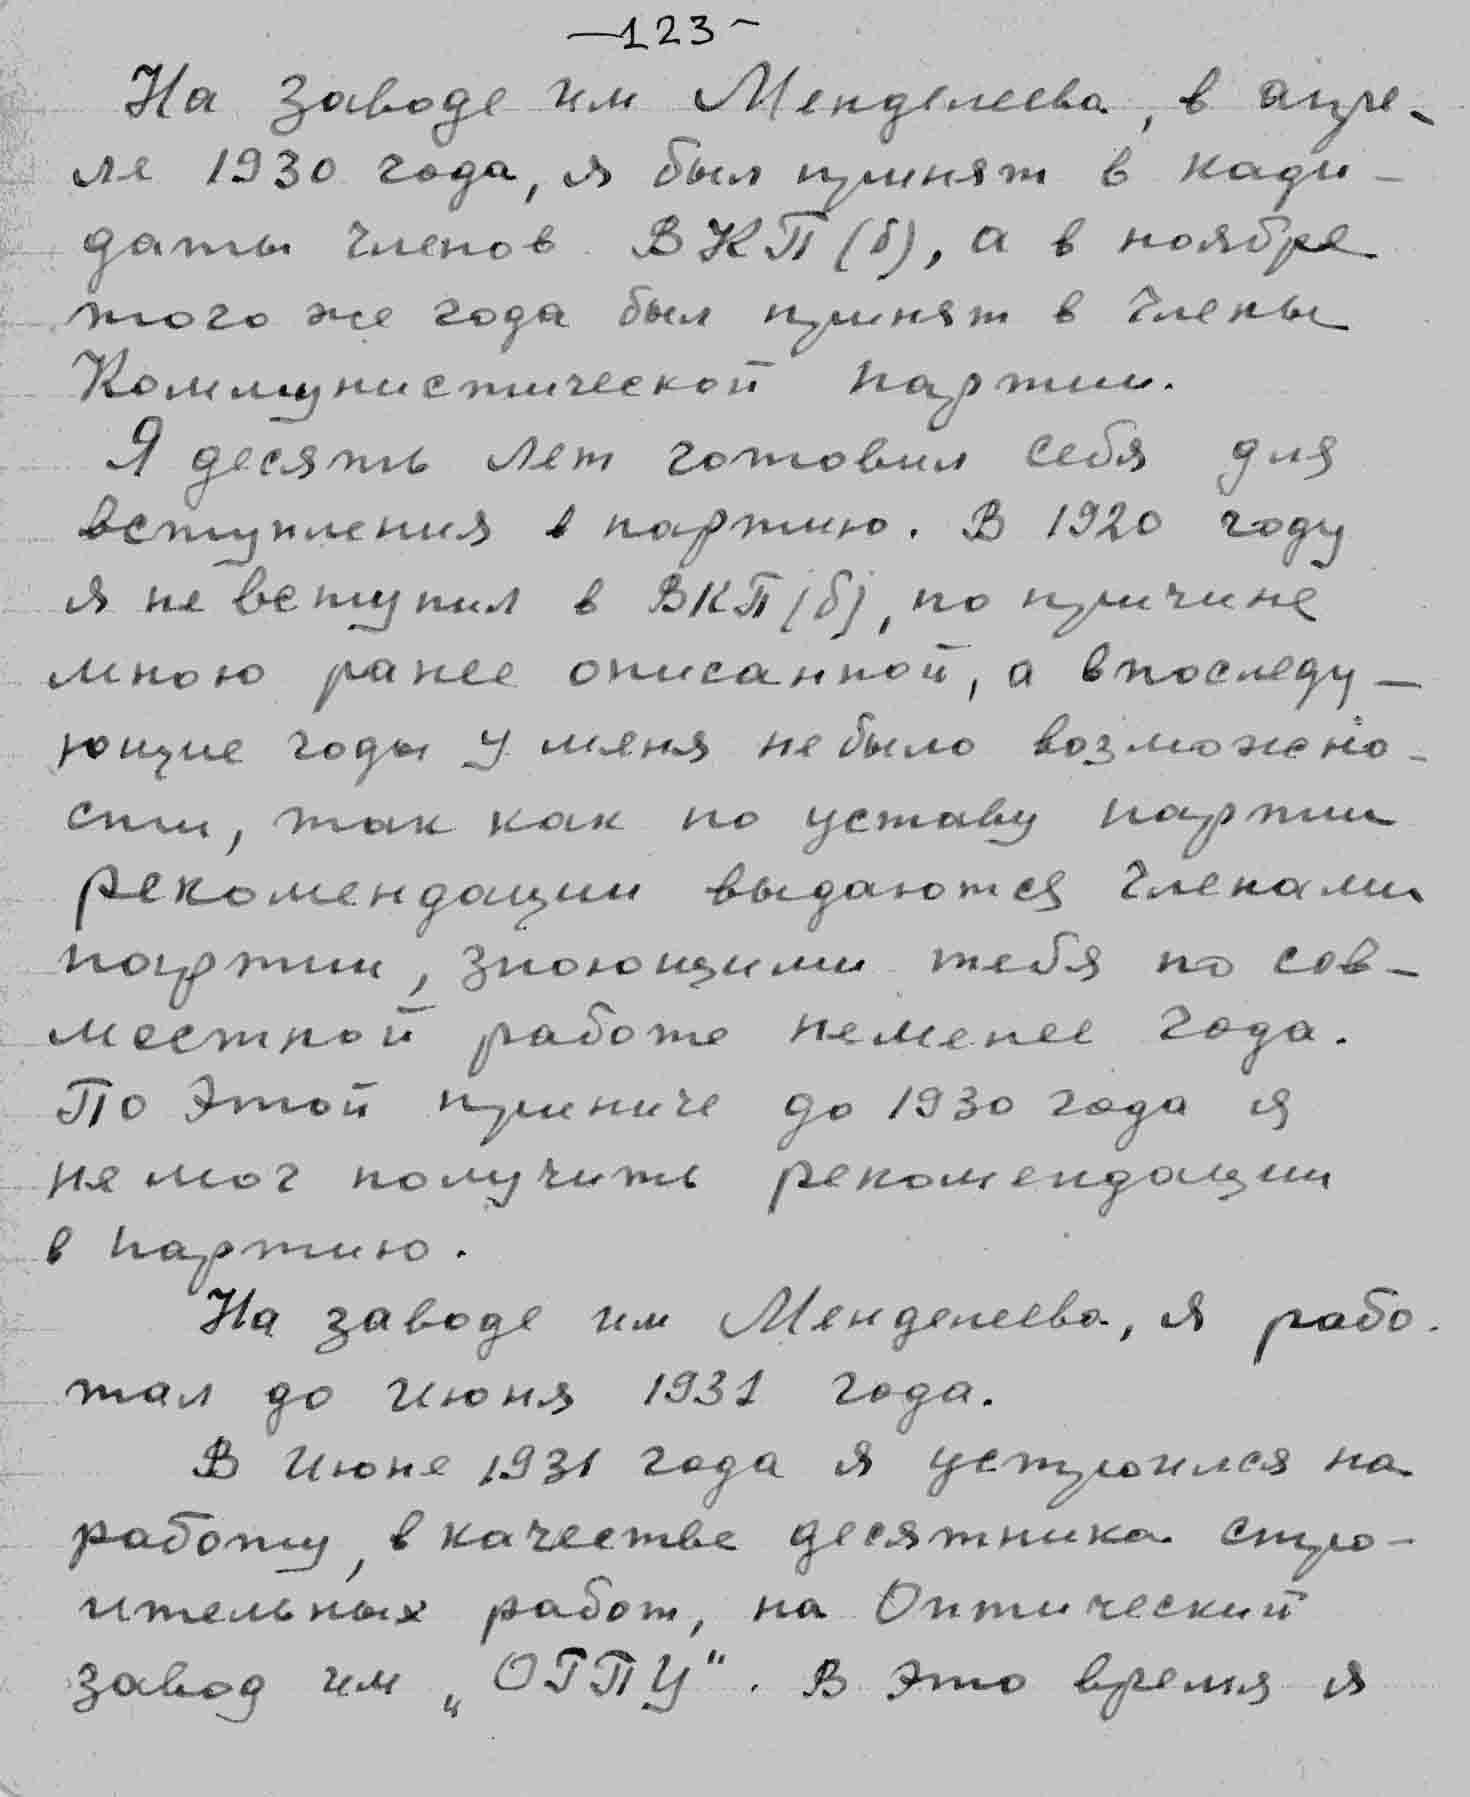 —123—
На заводе им Менделеева, в апре-
ле 1930 года, я был принят в кади-
даты членов ВКП(б), а в ноябре
того же года был принят в члены
Коммунистической партии.
Я десять лет готовил себя для
вступления в партию. В 1920 году
я не вступил в ВКП(б), по причине
мною ранее описанной, а впоследу-
ющие годы у меня небыло возможно-
сти, так как по уставу партии
рекомендации выдаются членами
партии, знающими тебя по сов-
местной работе неменее года.
По этой приниче до 1930 года я
не мог получить рекомендации
в партию.
На заводе им Менделеева, я рабо-
тал до июня 1931 года.
В июне 1931 года я устроился на
работу, в качестве десятника стро-
ительных работ, на Оптический
завод им „ОГПУ". В это время я